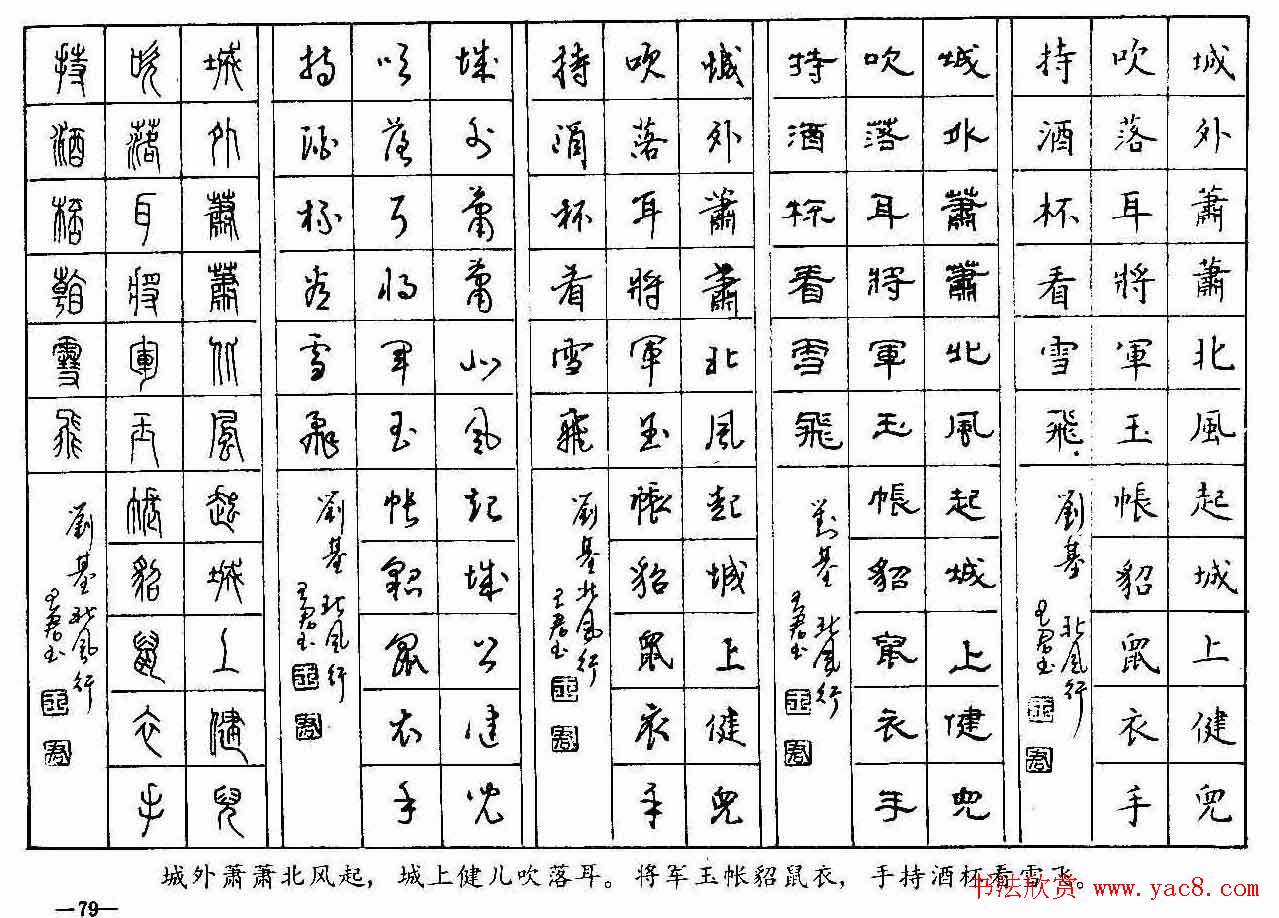 城外蕭蕭北風起城上健兒
吹落耳將軍玉帳貂鼠衣手
持酒杯看雪飛
劉基 北風行
王君
城外蕭蕭北風起城上健兒
吹落耳將軍玉帳貂鼠衣手
持酒杯看雪飛
劉基 北風行
王君
城外蕭蕭北風起城上健兒
吹落耳將軍玉帳貂鼠衣手
持酒杯看雪飛
劉基 北風行
王君
城外蕭蕭北風起城上健兒
吹落耳將軍玉帳貂鼠衣手
持酒杯看雪飛
劉基 北風行
王君
城外蕭蕭北風起城上健兒
吹落耳將軍玉帳貂鼠衣手
持酒杯看雪飛
劉基 北風行
王君
城外萧萧北风起，城上健儿吹落耳。将军玉帐貂鼠衣，手持酒杯看雪飞。
书法欣赏 www.yac8.com
—79—